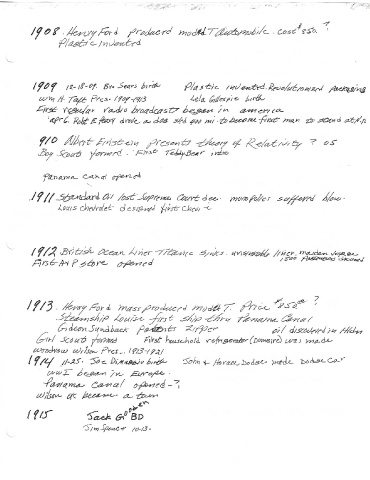 1908 - Henry Ford produced model T Automobile. cost $850. ?
Plastic invented
1909 12-18-09. Ben Sears birth Plastic invented Revolutionized packaging
Wm H. Taft Pres. 1909-1913 Lela Gillespie birth
First regular radio broadcasts began in america
apr 6 Robt E Peary drove a dog sled 600 mi. to become first man to stand at N.P.
910 Albert Einstein presents theory of Relativity ? 05
Boy Scouts formed. First Teddy Bear into
Panama canal opened
1911 Standard Oil lost Supreme Court dec. monopolies suffered blow.
Louis Chevrolet designed first Chev
1912 British Ocean Liner Titanic sinks. unsinkable liner. maiden voyage
1500 passengers drowned
First A&P store opened
1913. Henry Ford mass produced model T. Price $850.00 ?
Steamship Louise first ship thru Panama Canal
Gideon Sundback patents zipper oil discovered in
Girl Scouts formed First household refrigerator (Domelre) was made
Woodrow Wilson Pres. 1913-1921
1914 11-25. Joe Dimaggio birth John & Horace Dodge made Dodge Car
WWI began in Europe.
Panama Canal opened - ?
Wilson OK became a town
1915 Jack BD
Jim Spence 10-13.